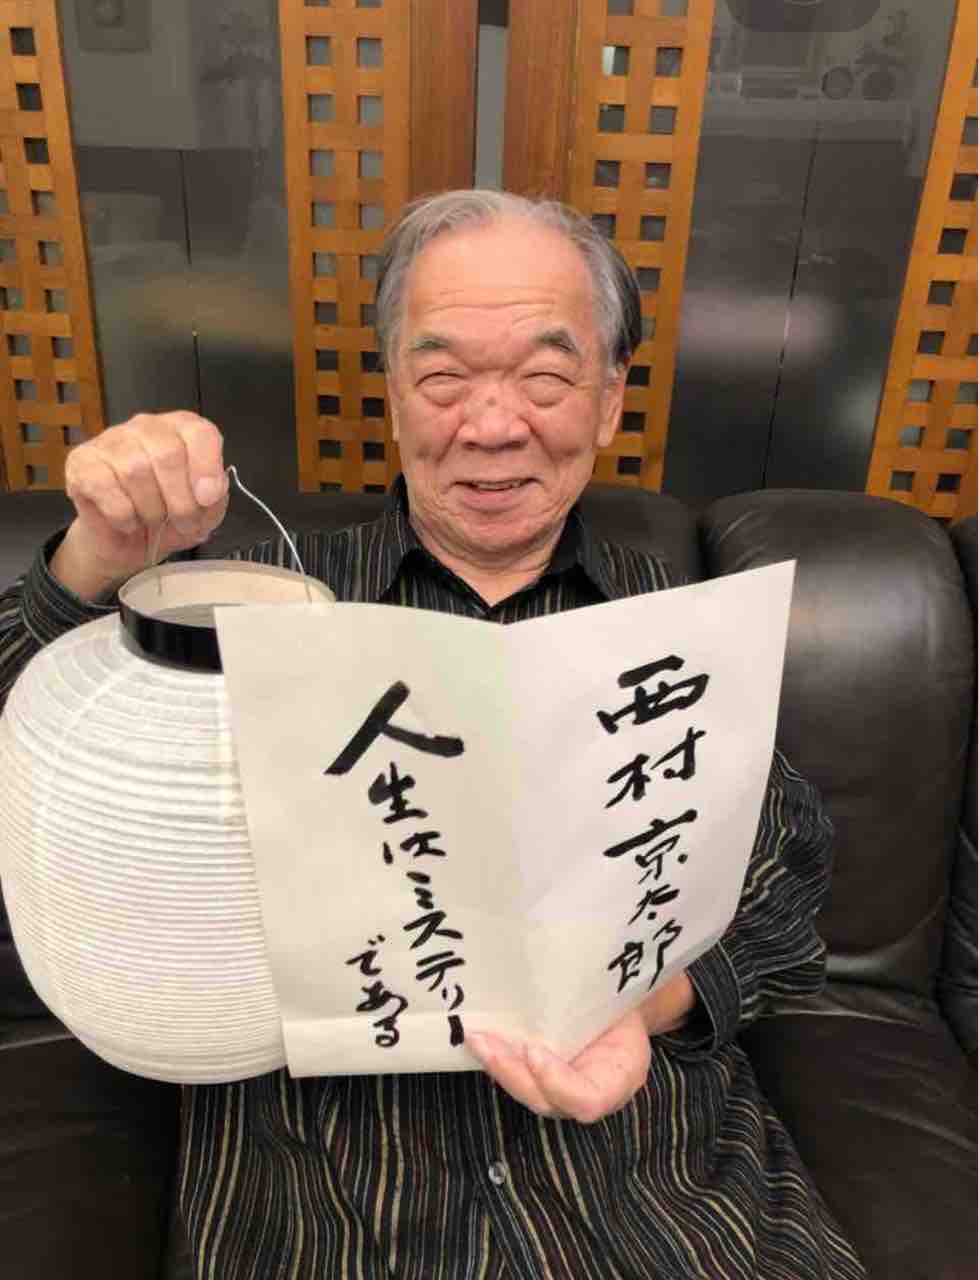 西村京太郎
人生はミステリー
である